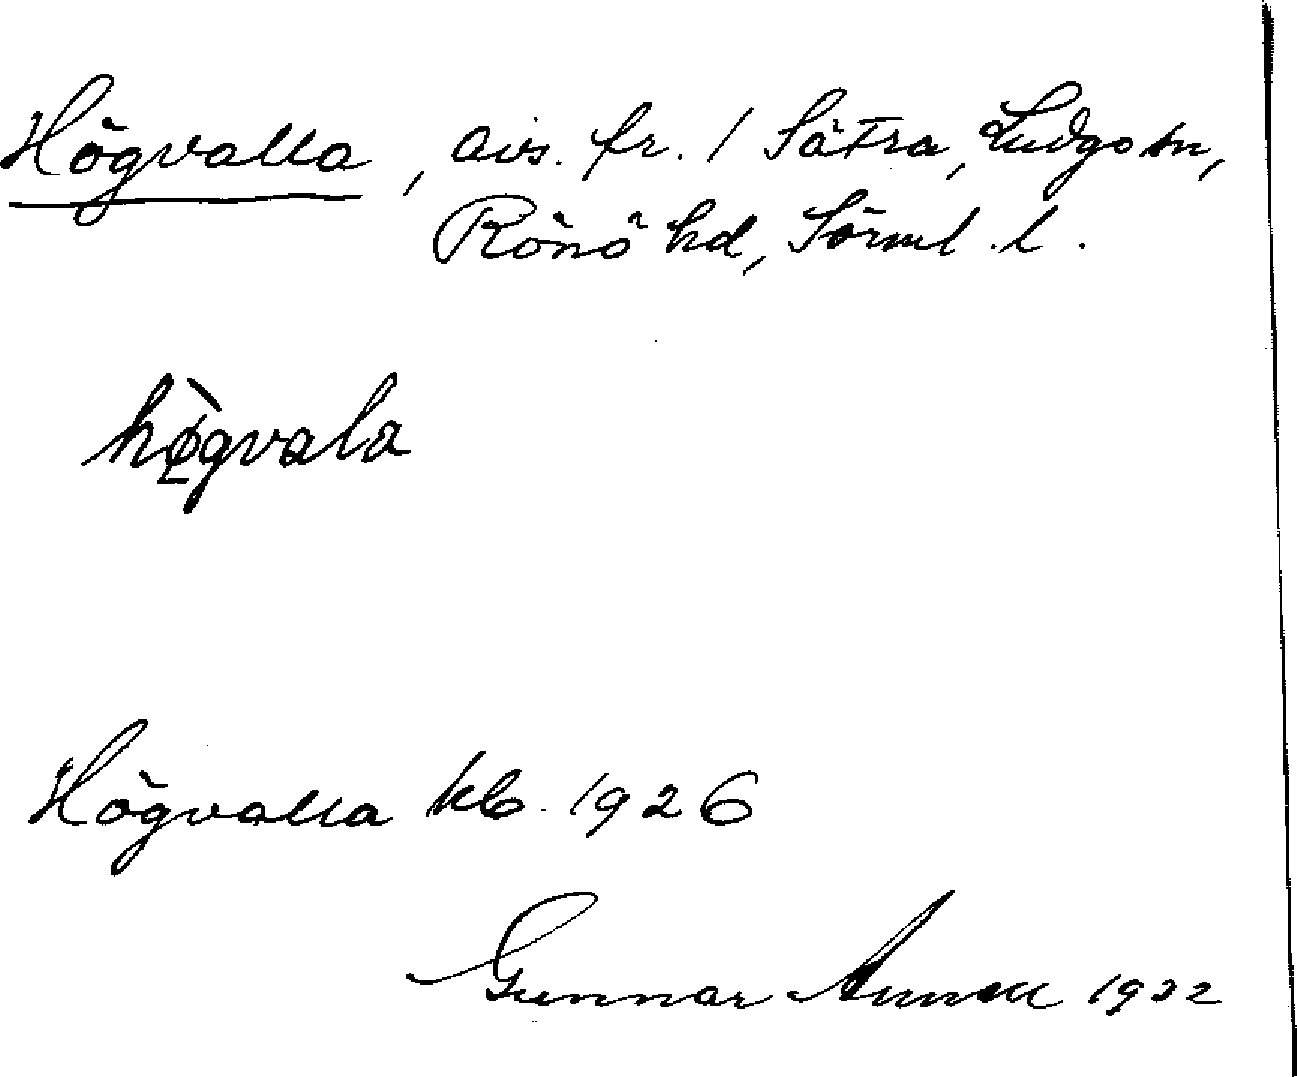 Högvalla, avs. fr. 1 Sätra, Ludgo sn,
Rönö hd, Sörml. l.
hø̀gvala
Högvalla kb. 1926
Gunnar 1932